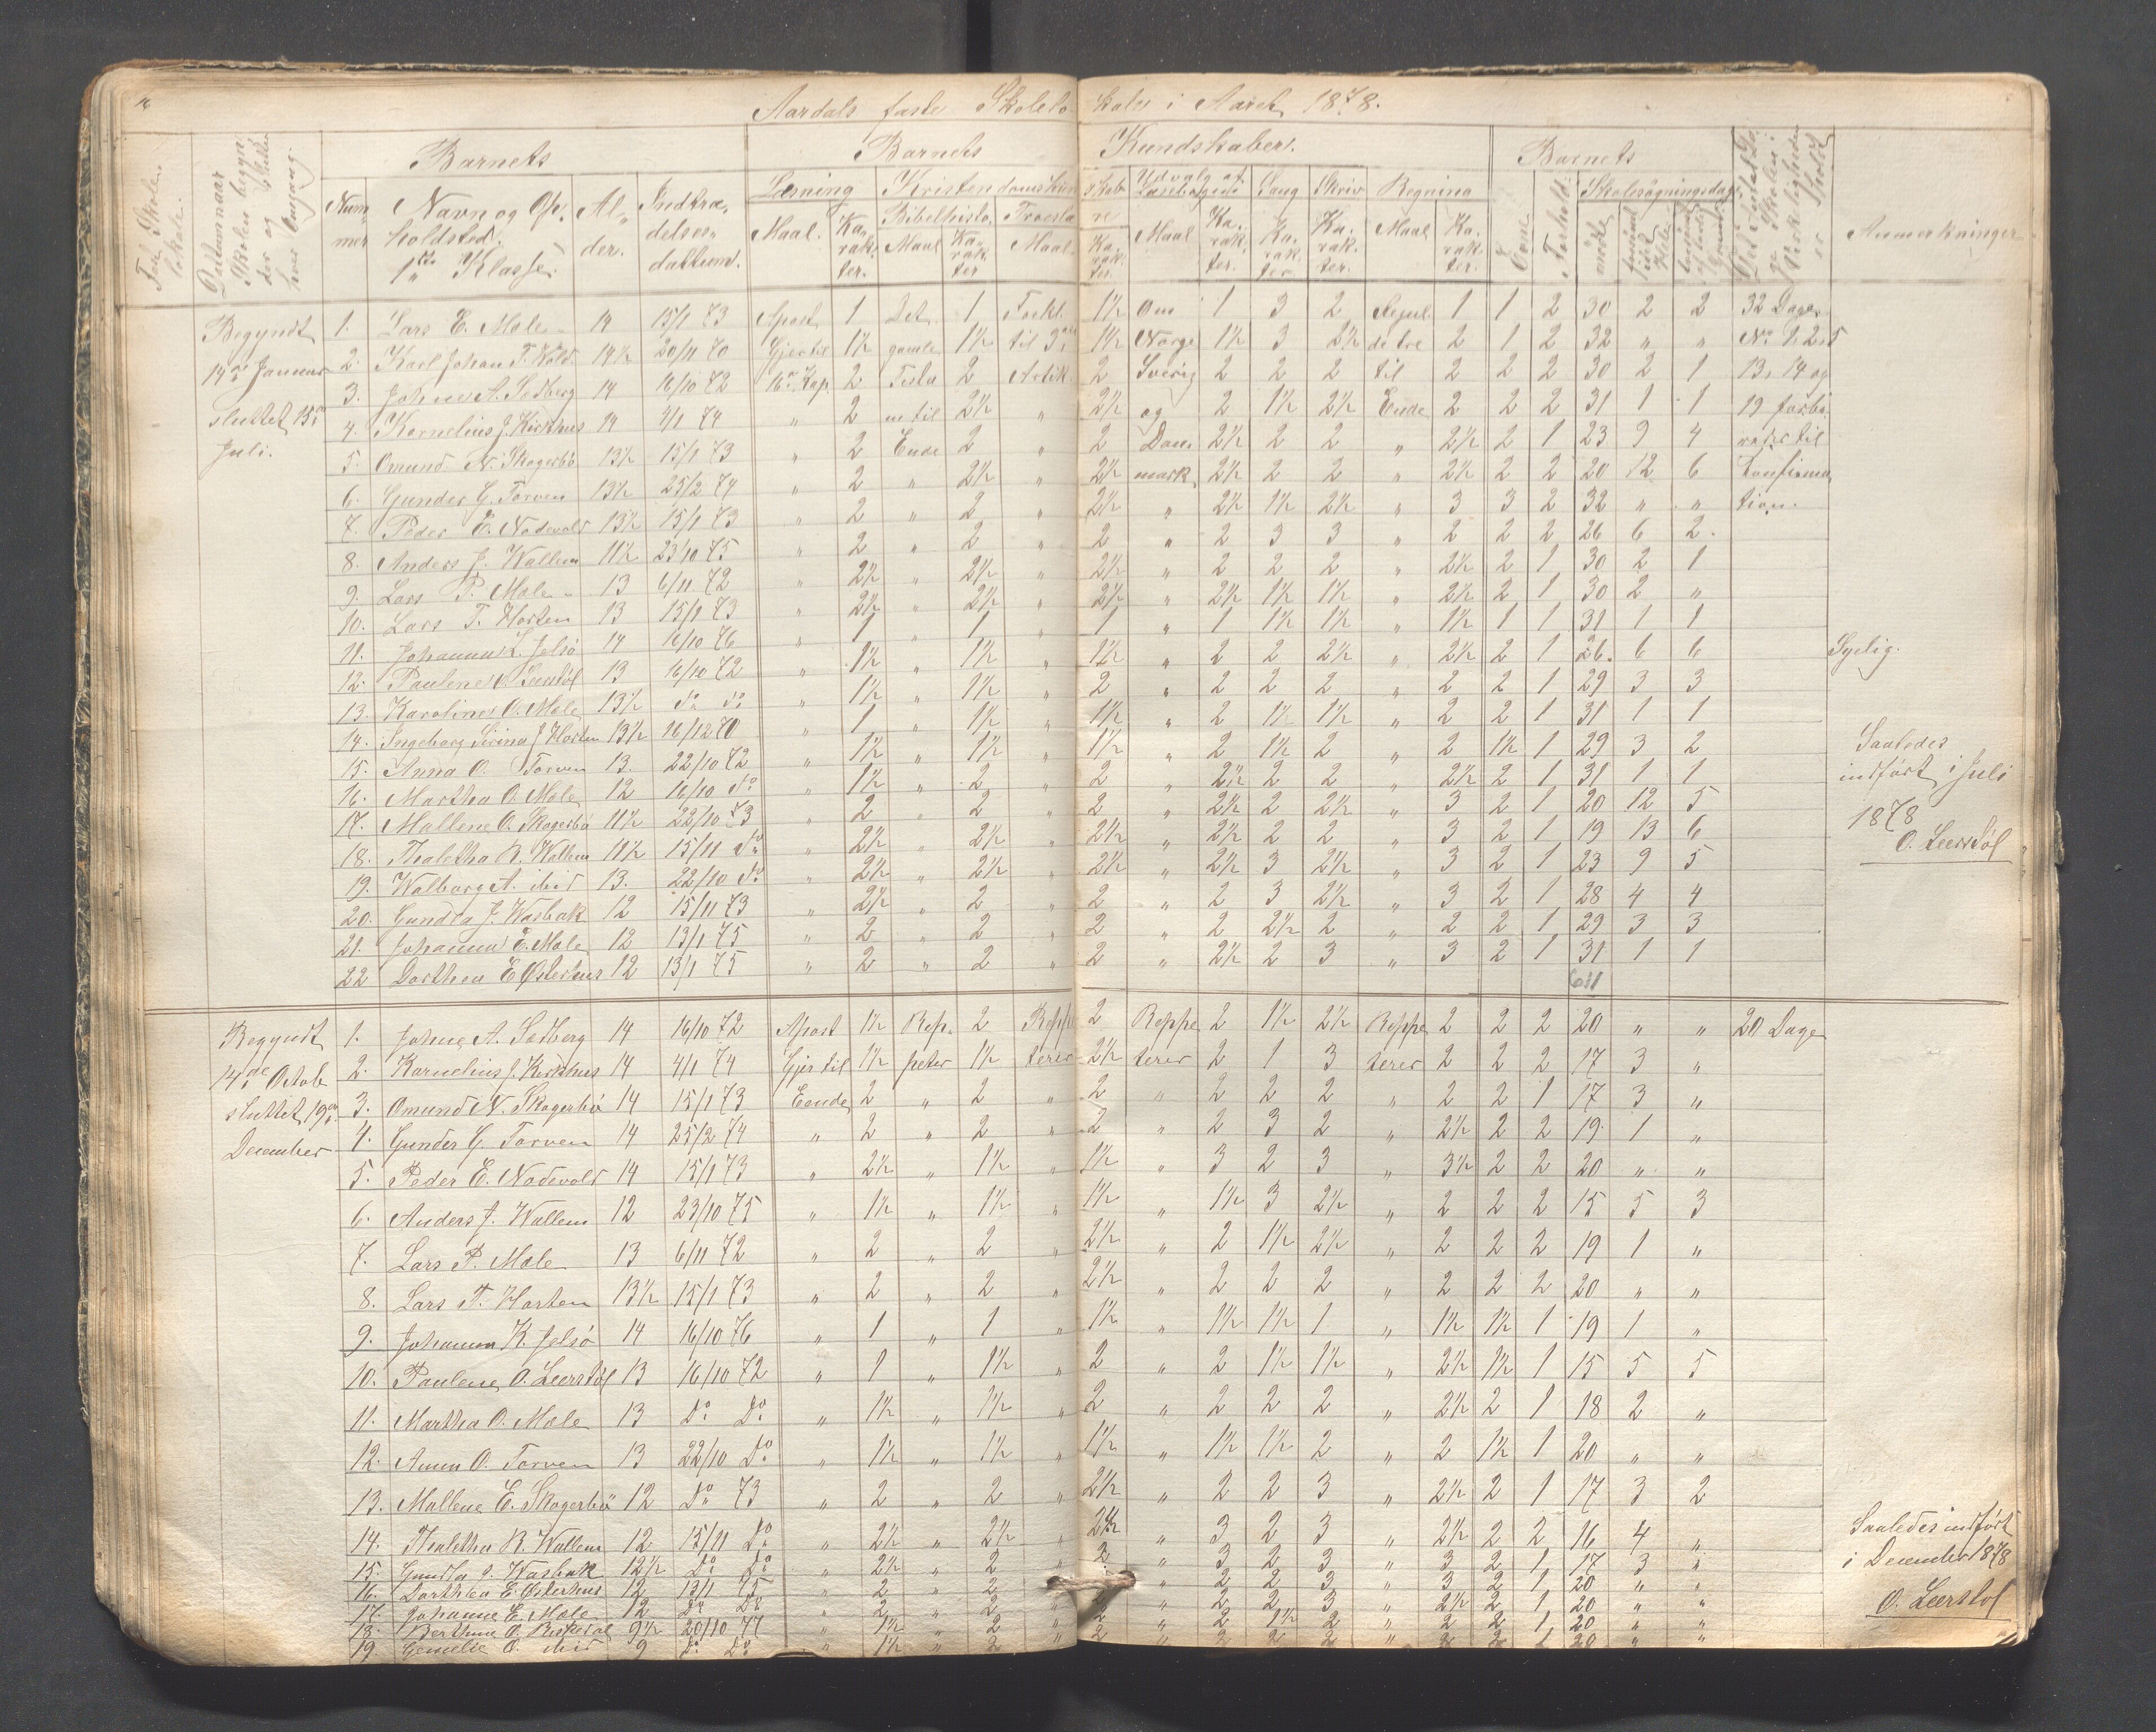 Aardals faste Skolelokale i Aaret 1878.
Barnets Barnets Kundskaber. Barnets
Læsning Kristendomskundskab Udvalg af Læsebogen Sang Skriv Regning Skolesøgningsdage
Bibelhisto. Troeslæ
Nummer Navn og Opholdsted. 1ste Klasse Alder. Indtrædelsesdattum. Maal. Karakter. Maal Karakter Maal Karakter. Maal Karakter. Karakter Karakter. Maal Karakter. Evne Forhold. mødte Anmerkninger
Begyndt 1. Lars E. Mæle 14 15/1 73 Apost 1 Det 1 Forkl. 1½ Om 1 3 2 Regul. 1 1 2 30 2 2 32 Dage
14de Januar 2. Karl Johan T. Wold 14½ 20/11 70 Gjer til 1½ gamle 1½ til 3die 1½ Norge 1½ 3 2½ de tre 2 1 2 32 " " No 1, 2
3. Johne A. Sedberg 14 16/10 72 16de Kap. 2 Testa 2 Artik. 2 Sverig 2 2 2 til 2 2 2 30 2 1 13, 14 og
sluttet 13de 4. Kornelius J. Kirkhus 14 4/1 74 " 2 m til 2½ " 2½ og 2 1½ 2½ Ende 2 2 2 31 1 1 19 forbe
Juli. 5. Omund N. Skogerbø 13½ 15/1 73 " 2 Ende 2 " 2 Dan 2½ 2 2 " 2½ 2 1 23 9 4 redes til
6. Gunder G. Torven 13½ 25/2 74 " 2 " 2½ " 2½ mark 2½ 2 2 " 2½ 2 2 20 12 6 Konfirma
7. Peder E. Nodevold 13½ 15/1 73 " 2 " 2 " 2½ " 2½ 1½ 2½ " 3 3 2 32 " " tion.
8. Anders J. Wallem 11½ 23/10 75 " 2 " 2 " 2 " 2 3 3 " 2 2 2 26 6 2.
9. Lars P. Mæle 13 6/11 72 " 2½ " 2½ " 2½ " 2 2 2 " 2½ 2 1 30 2 1
10. Lars T. Horten 13 15/1 73 " 2½ " 2½ " 2½ " 2½ 1½ 1½ " 2½ 2 1 30 2 "
11. Johanna K. Jelsø 14 16/10 76 " 1 " 1 " 1 " 1 1½ 1½ " 1½ 1 1 31 1 1
12. Paulene O. Leerstøl 13 16/10 72 " 1½ " 1½ " 1½ " 2 2 2½ " 2½ 2 1 26. 6 6 Sygelig.
13. Karoline O. Mæle 13½ do do " 1½ " 1½ " 2 " 2 2 2 " 2 2 1 29 3 3
14. Ingeborg Serina J Horten 13½ 16/12 70 " 1 " 1½ " 1½ " 2 1½ 1½ " 2 2 1 31 1 1
15. Anna O. Torven 13. 22/10 72 " 1½ " 1½ " 1½ " 2 1½ 2 " 2 1½ 1 29 3 2 Saaledes
16. Martha O. Mæle 12 16/10 do " 1½ " 2 " 2 " 2½ 2 2 " 2½ 2 1 31 1 1 indført i Juli
17. Mallene O. Skogerbø 11½ 22/10 73 " 2 " 2 " 2 " 2½ 2 2½ " 3 2 1 20 12 5 1878
18. Thaletha R. Wallem 11½ 15/11 do " 2½ " 2½ " 2½ " 2½ 2 2 " 3 2 1 19 13 6 O. Leerstøl
19. Walborg A. ibid 13. 22/10 do " 2½ " 2½ " 2½ " 2½ 3 2½ " 3 2 1 23 9 5
20. Gundla J. Wasbak 12 15/11 73 " 2½ " 2 " 2 " 2 3 2½ " 3 2 1 28 4 4
21. Johanna E. Mæle 12 13/1 75 " 2 " 2 " 2 " 2 2½ 2 " 2 2 1 29 3 3
22 Dorthea E Østerhus 12 13/1 75 " 2 " 2 " 2 " 2½ 2 3 " 3 2 1 31 1 1
611
Begyndt 1. Johne A. Sedberg 14 16/10 72 Apost 1½ Rep. 2 Reppe 2 Reppe 2 1½ 2½ Reppe 2 2 2 20 " " 20 Dage
14de Octob 2. Kornelius J. Kirkhus 14 4/1 74 Gjer til 1½ peter 1½ terer 2½ terer 2 1 3 terer 2 2 2 17 3 "
sluttet 19de 3. Omund N. Skogerbø 14 15/1 73 Eende 2 " 2 " 2 " 2 2 2 " 2 2 1 17 3 "
December 4. Gunder G. Torven 14 25/2 74 " 2 " 2 " 2 " 2 3 2 " 2½ 2 2 19 1 "
5. Peder E. Nodevold 14 15/1 73 " 2½ " 1½ " 1½ " 3 2 3 " 3½ 2 2 20 " "
6. Anders J. Wallem 12 23/10 75 " 1½ " 1½ " 1½ " 1½ 3 2½ " 2 2 2 15 5 3
7. Lars P. Mæle 13 6/11 72 " 2 " 2 " 2½ " 2 1½ 2½ " 2 2 2 19 1 "
8. Lars T. Horten 13½ 15/1 73 " 2 " 2 " 2½ " 2 2 2 " 2 2 2 20 " "
9. Johanna K. Jelsø 14 16/10 76 " 1 " 1 " 1½ " 1½ 1½ 1 " 1½ 1½ 1 19 1 "
10. Paulene O. Leerstøl 13 16/10 72 " 1 " 1½ " 2 " 2 1½ 1½ " 2½ 1½ 1 15 5 5
11. Martha O. Mæle 13 do do " 1½ " 1½ " 2 " 2 2 2 " 2½ 2 1 18 2 "
12. Anna O. Torven 13 22/10 do " 1½ " 1½ " 1½ " 1½ 1½ 2 " 2 1½ 1 20 " "
13. Mallene E. Skogerbø 12 do 73 " 2 " 2 " 2½ " 2 2 3 " 2½ 2 1 17 3 2
14. Thaletha R. Wallem 12 15/11 do " 2½ " 2½ " 2½ " 3 2 3 " 2½ 2 2 16 4 " Saaledes indført
15. Gundla J. Wasbak 12½ do do " 2½ " 2 " 2 " 3 2 3 " 3 2 1 17 3 " i December 1878
16. Dorthea E. Østerhus 12 13/1 75 " 2 " 2 " 2 2 3 " 3 2 1 20 " "
17. Johanne E. Mæle 12 do do " 2 " 2 " 2 2 3 " 2½ 2 1 20 " " O. Leerstøl
18. Berthine O 9½ 20/10 77 " 1½ " 2 " 2 " 2 1½ 2 " 2 2 1 20 " "
19 O ibid 9 do do " 1½ " 2 " 2 " 2 2 2 " 2 2 1 20 " "